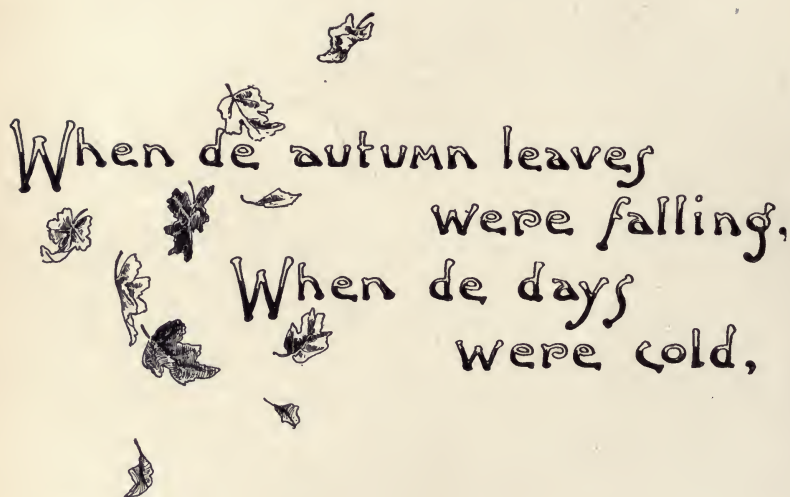 When de autumn leaves
were falling,
When de days
were cold,